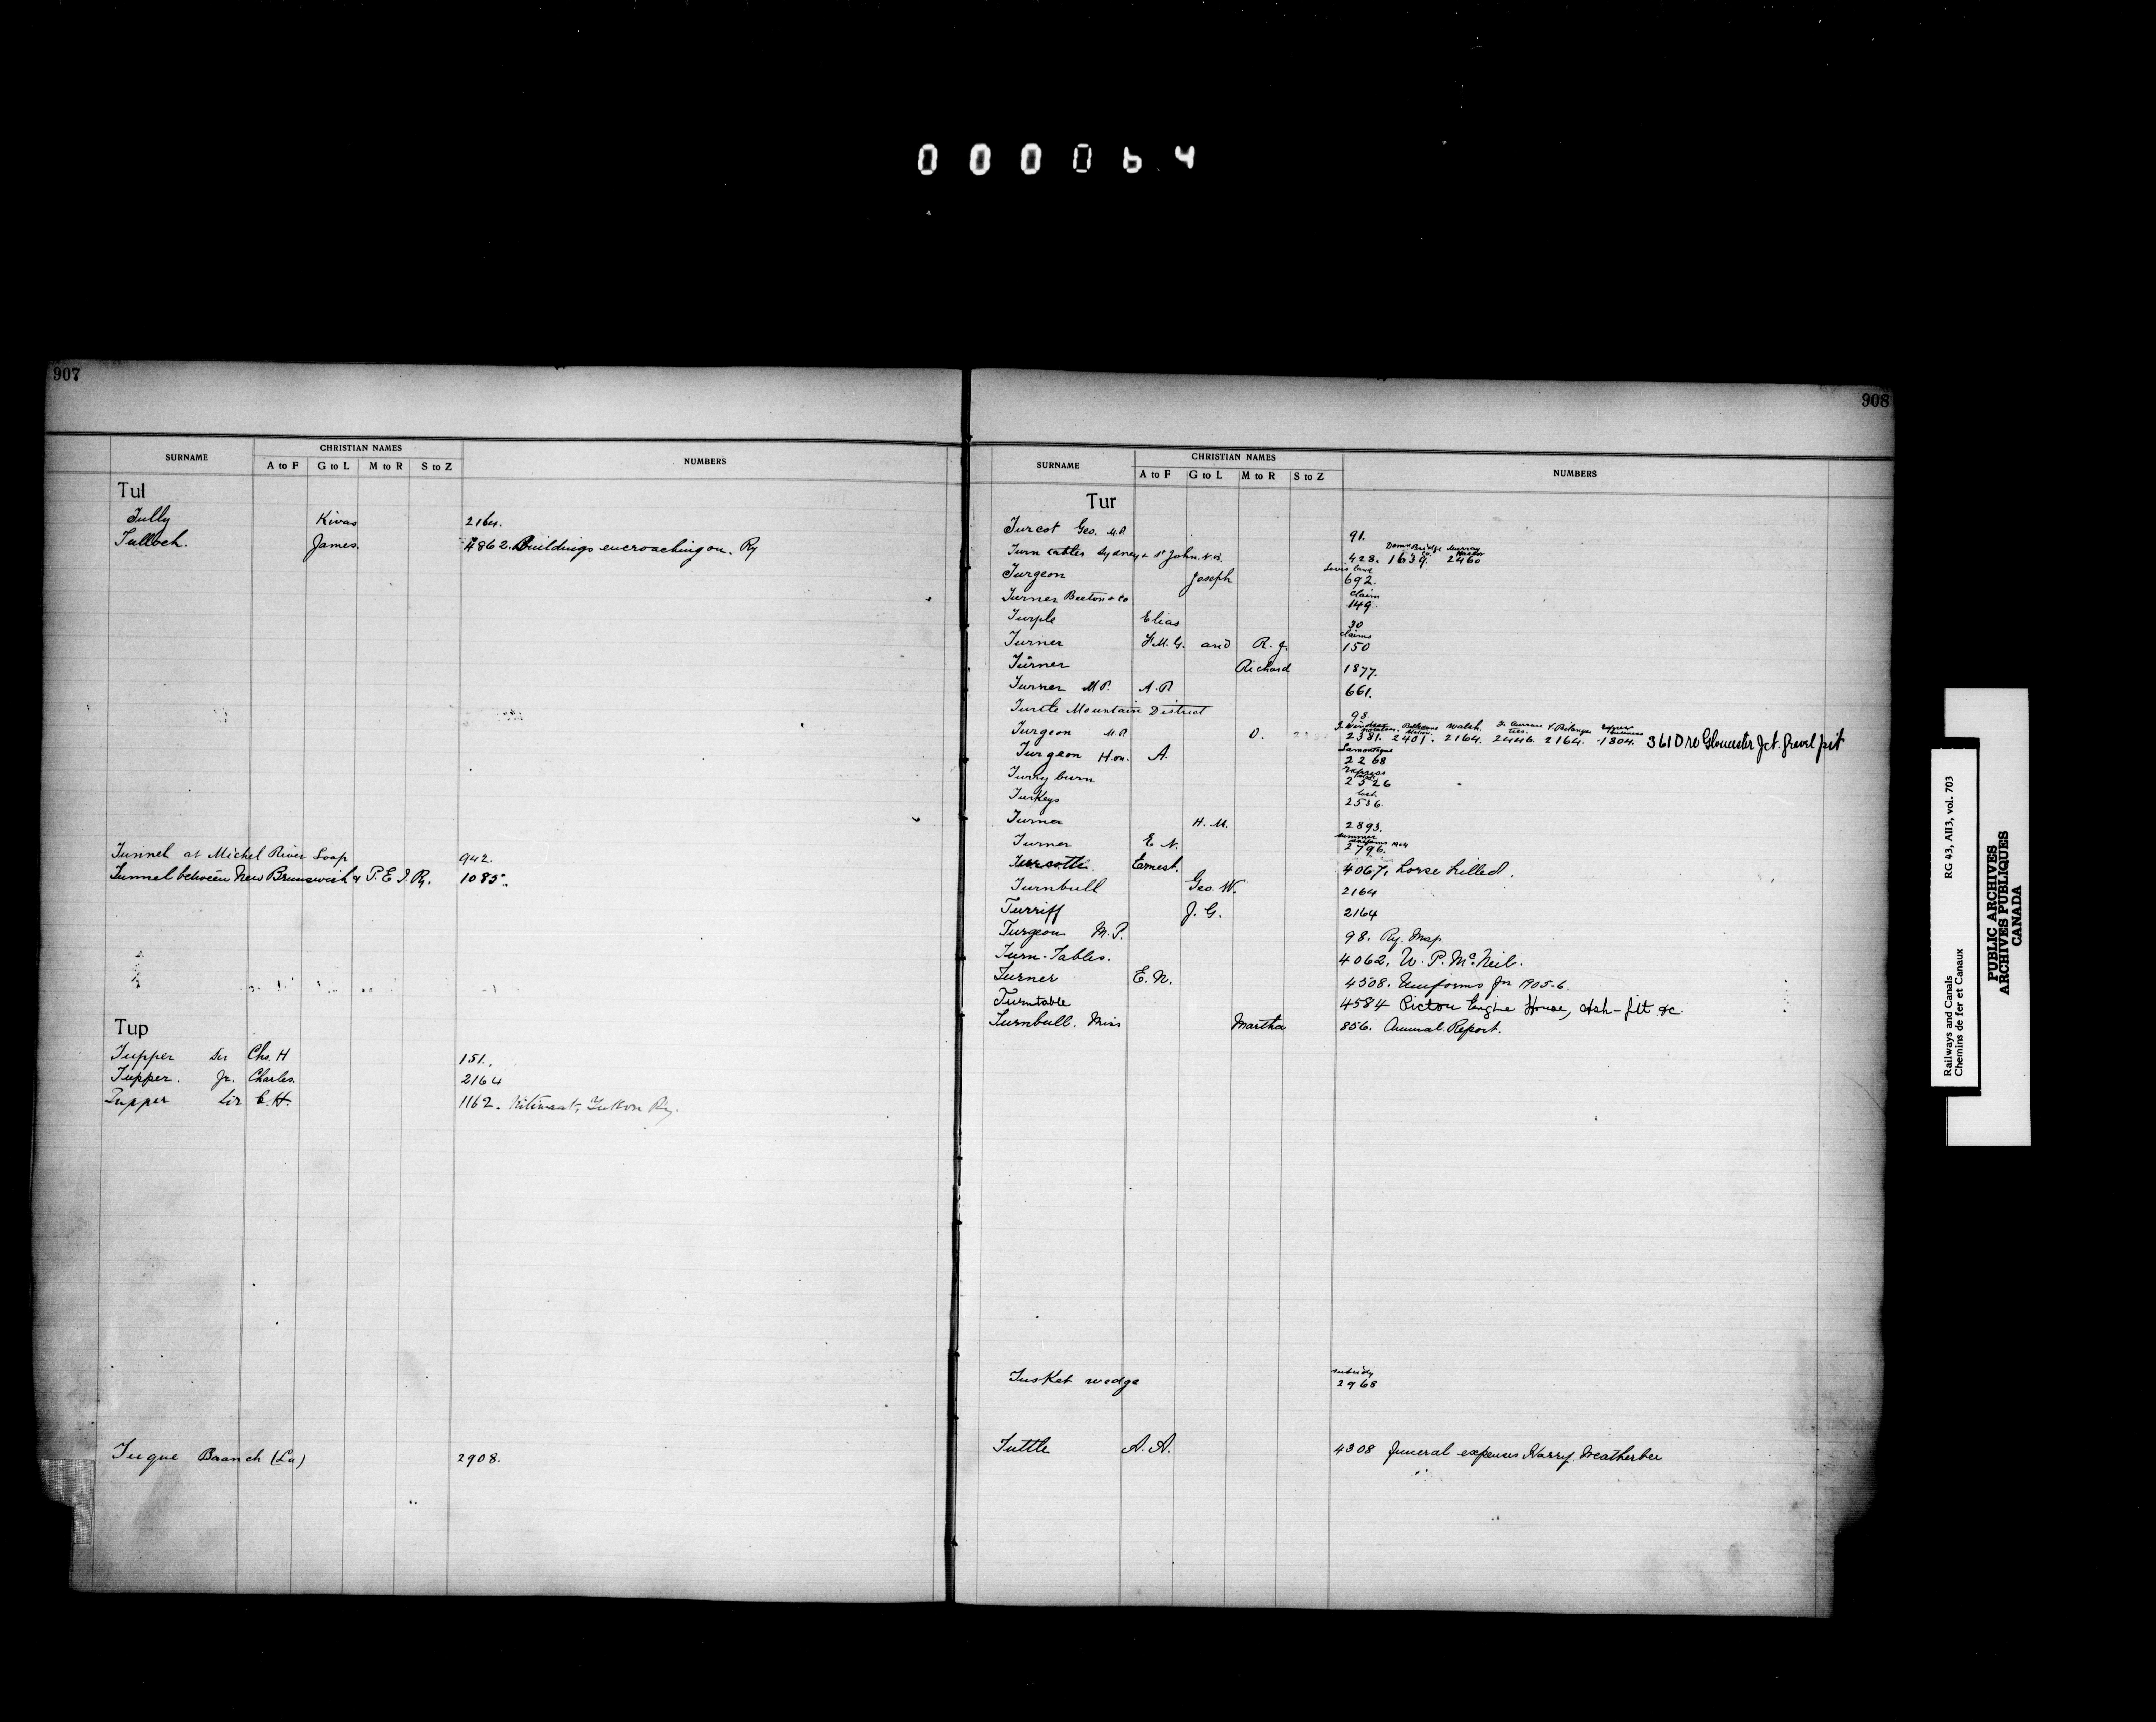 000064
907
SURNAME CHRISTIAN NAMES NUMBERS
A to F G to L M to R S to Z
Tul
Tully Kivas 2164.
Tulloch. James. 4862. Buildings encroaching on. Ry
Tunnel at Michel River Loop 942.
Tunnel between New Brunswick & P.E.I. Ry. 1085.
Tup
Tupper Sir Chs. H 151.
Tupper. Jr. Charles. 2164
Tupper Sir C. H. 1162. Kitimaat, Yukon Ry.
Tuque Branch (La) 2908.
908
SURNAME CHRISTIAN NAMES NUMBERS
A to F G to L M to R S to Z
Tur
Turcot Geo. M.P. 91.
Dom. Bridge Co. Murray Harbor
Turn tables Sydney & St John. N.B. 428. 1639. 2460
Levis
Turgeon Joseph 692.
claim
Turner Beeton & Co 149.
Turple Elias 30
claims
Turner F.M.G. and R. J. 150
Turner Richard 1877.
Turner M P. A. P. 661.
Turtle Mountain District 98.
Walsh.
Turgeon M.P. O. 2381. 2401. 2164. 2446. 2164. 1804. 3610 re Gloucester Jct. gravel pit
Lamontagne
Turgeon Hon. A. 2268
Express
Turryburn 2326
lost
Turkeys 2536.
Turner H. M. 2893.
summer uniforms 1904
Turner E N. 2796.
Turcotte. Ernest. 4067, horse killed.
Turnbull Geo. W. 2164
Turriff J. G. 2164
Turgeon M.P. 98. Ry. Map.
Turn-Tables. 4062. W. P. McNeil.
Turner E. N. 4508. Uniforms for 1905-6.
Turntable 4584 Pictou Engine House, Ash-pit &c.
Turnbull. Miss Martha 856. Annual Report.
subsidy
Tusket wedge 2968
Tuttle A. A. 4308 funeral expenses Harry Weatherbee
Railways and Canals RG 43, AII3, vol. 703
Chemins de fer et Canaux
PUBLIC ARCHIVES
ARCHIVES PUBLIQUES
CANADA